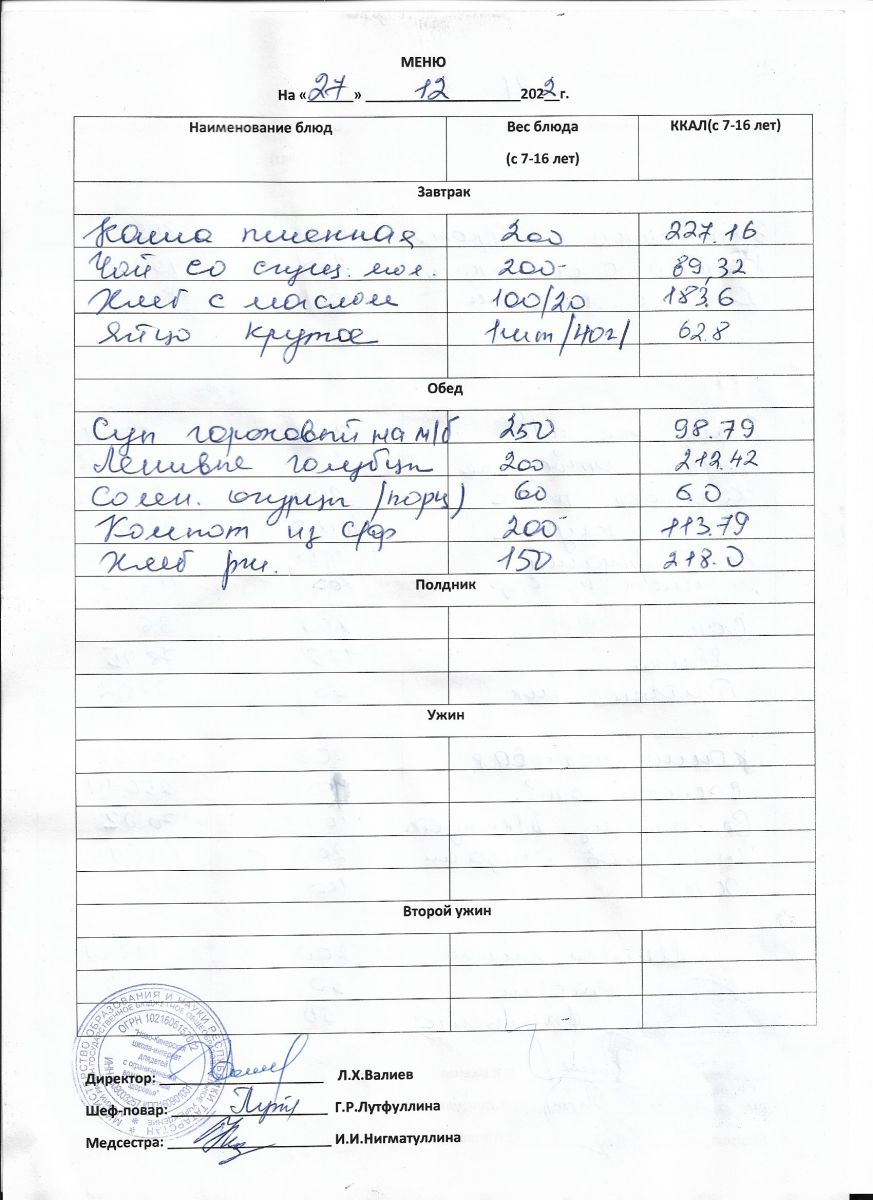 МЕНЮ
На «27» 12 2022 г.
Наименование блюд Вес блюда (с 7-16 лет) ККАЛ(с 7-16 лет)
Завтрак
Каша пшенная 200 227.16
Чай со сгущ. мол. 200 89,32
Хлеб с маслом 100/20 183,6
Яйцо крутое 1шт/40г/ 62.8
Обед
Суп гороховый на м/б 250 98.79
Ленивые голубцы 200 212.42
Солен. огурцы /порц) 60 6.0
Компот из с/ф 200 113.79
Хлеб рж. 150 218.0
Полдник
Ужин
Второй ужин
ОГРН
"Ново-Кинерская
школа-интернат
для детей
с ограниченными
Директор: Л.Х.Валиев
Шеф-повар: Г.Р.Лутфуллина
Медсестра: И.И.Нигматуллина